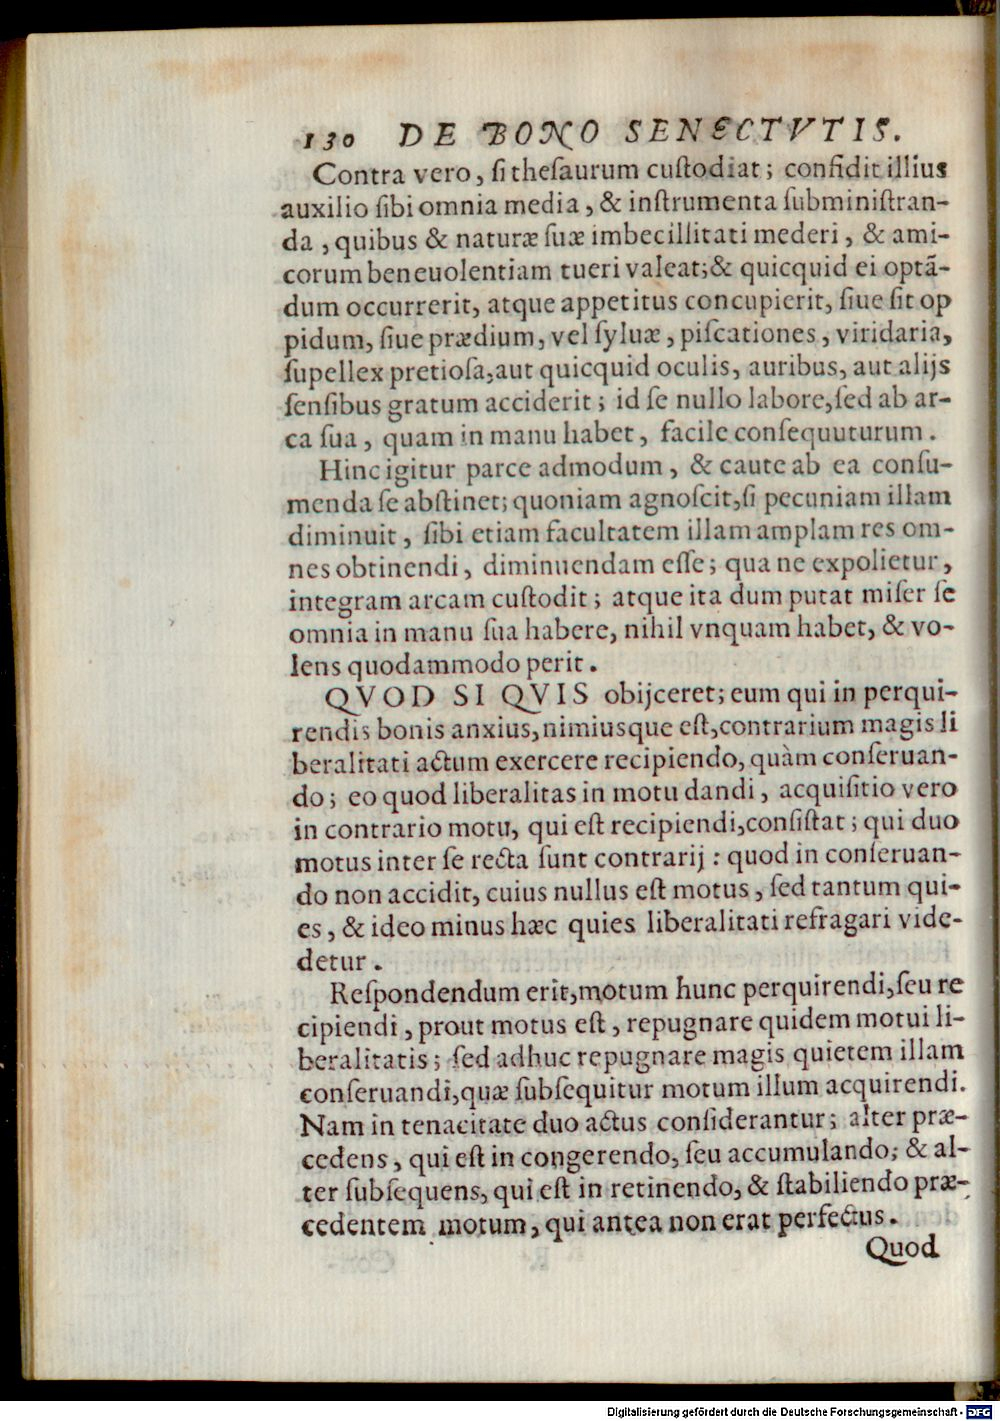 130 DE BONO SENECTVTIS.
Contra vero, ſi theſaurum cuſtodiat; confidit illius
auxilio ſibi omnia media, & inſtrumenta ſubminiſtran-
da, quibus & naturæ ſuæ imbecillitati mederi, & ami-
corum beneuolentiam tueri valeat; & quicquid ei optã-
dum occurrerit, atque appetitus concupierit, ſiue ſit op
pidum, ſiue prædium, vel ſyluæ, piſcationes, viridaria,
ſupellex pretioſa, aut quicquid oculis, auribus, aut alijs
ſenſibus gratum acciderit; id ſe nullo labore, ſed ab ar-
ca ſua, quam in manu habet, facile conſequuturum.
Hinc igitur parce admodum, & caute ab ea conſu-
menda ſe abſtinet; quoniam agnoſcit, ſi pecuniam illam
diminuit, ſibi etiam facultatem illam amplam res om-
nes obtinendi, diminuendam eſſe; qua ne expolietur,
integram arcam cuſtodit; atque ita dum putat miſer ſe
omnia in manu ſua habere, nihil vnquam habet, & vo-
lens quodammodo perit.
QVOD SI QVIS obijceret; eum qui in perqui-
rendis bonis anxius, nimiusque eſt, contrarium magis li
beralitati actum exercere recipiendo, quàm conſeruan-
do; eo quod liberalitas in motu dandi, acquiſitio vero
in contrario motu, qui eſt recipiendi, conſiſtat; qui duo
motus inter ſe recta ſunt contrarij: quod in conſeruan-
do non accidit, cuius nullus eſt motus, ſed tantum qui-
es, & ideo minus hæc quies liberalitati refragari vide-
detur.
Reſpondendum erit, motum hunc perquirendi, ſeu re
cipiendi, prout motus eſt, repugnare quidem motui li-
beralitatis; ſed adhuc repugnare magis quietem illam
conſeruandi, quæ ſubſequitur motum illum acquirendi.
Nam in tenacitate duo actus conſiderantur; alter præ-
cedens, qui eſt in congerendo, ſeu accumulando; & al-
ter ſubſequens, qui eſt in retinendo, & ſtabiliendo præ-
cedentem motum, qui antea non erat perfectus.
Quod
Digitalisierung gefördert durch die Deutsche Forschungsgemeinschaft - DFG